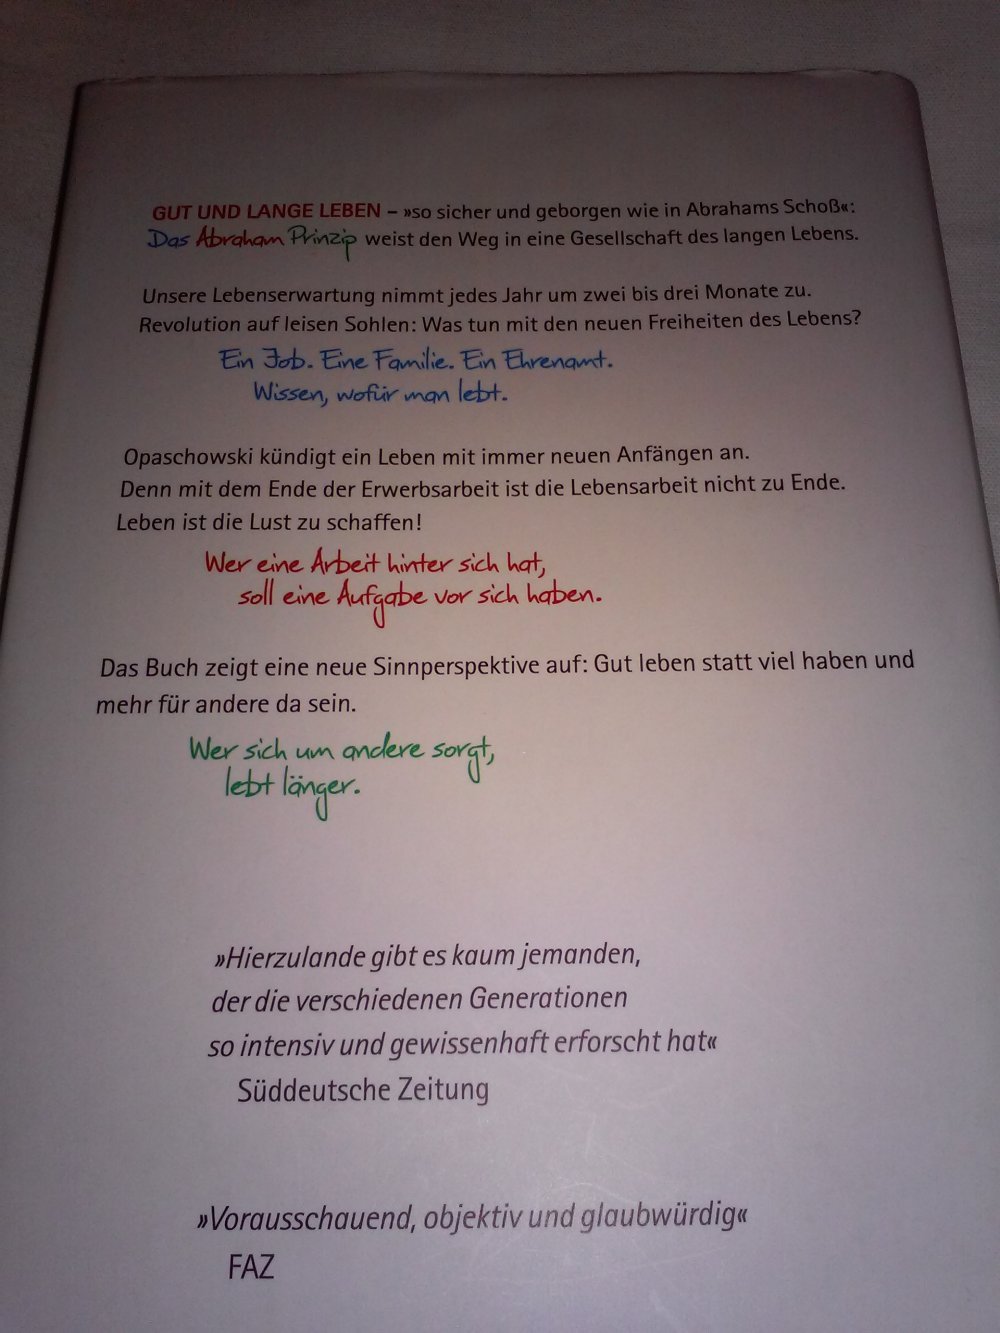 GUT UND LANGE LEBEN – »so sicher und geborgen wie in Abrahams Schoß«:
Das Abraham Prinzip weist den Weg in eine Gesellschaft des langen Lebens.
Unsere Lebenserwartung nimmt jedes Jahr um zwei bis drei Monate zu.
Revolution auf leisen Sohlen: Was tun mit den neuen Freiheiten des Lebens?
Ein Job. Eine Familie. Ein Ehrenamt.
Wissen, wofür man lebt.
Opaschowski kündigt ein Leben mit immer neuen Anfängen an.
Denn mit dem Ende der Erwerbsarbeit ist die Lebensarbeit nicht zu Ende.
Leben ist die Lust zu schaffen!
Wer eine Arbeit hinter sich hat,
soll eine Aufgabe vor sich haben.
Das Buch zeigt eine neue Sinnperspektive auf: Gut leben statt viel haben und
mehr für andere da sein.
Wer sich um andere sorgt,
lebt länger.
»Hierzulande gibt es kaum jemanden,
der die verschiedenen Generationen
so intensiv und gewissenhaft erforscht hat«
Süddeutsche Zeitung
»Vorausschauend, objektiv und glaubwürdig«
FAZ